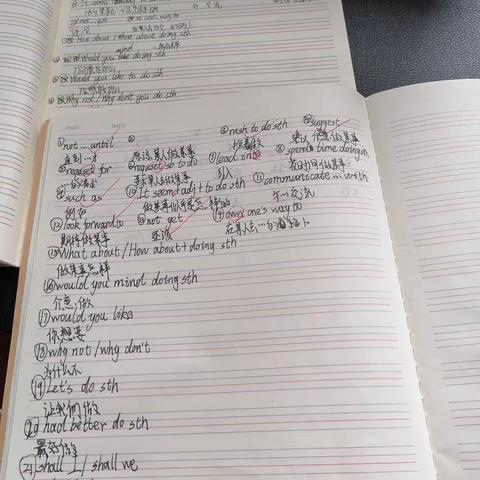 not...yet
in one's way to
还没
How about / What about doing sth
mind
Would you like doing sth
Would you like to do sth
Why not / Why don't you do sth
① not ... until
②
rush to do sth
suggest
直到...才
应该某人做某事
抢着做
建议 介意做某事
request for
request sb to do
lead into
⑧ spend time doing
要求某人做某事
引入
花时间做某事
such as
⑩ It seem + adj + to do sth
⑪ communicate ... with
例如
做某事似乎是怎样的
与...交流
⑫ look forward to
⑬ not yet
⑭ own one's way to
期待做某事
还没
在某人去...的道路上
⑮ What about / How about + doing sth
做某事怎样
⑯ would you mind doing sth
介意做
⑰ would you like
你想要
⑱ why not / why don't
为什么不
⑲ Let's do sth
让我们做
⑳ had better do sth
最好做
㉑ shall I / shall we